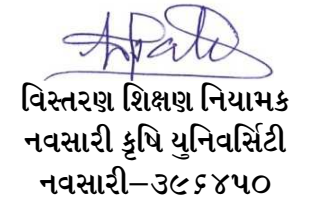 વિસ્તરણ શિક્ષણ નિયામક
નવસારી કૃષિ યુનિવર્સિટી
નવસારી–૩૯૬૪૫૦